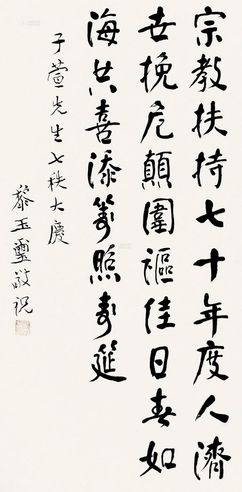 宗教扶持七十年度人濟
世挽危顛圍謳佳日春如
海共喜添籌照壽筵
子萱先生七秩大慶
黎玉璽敬祝